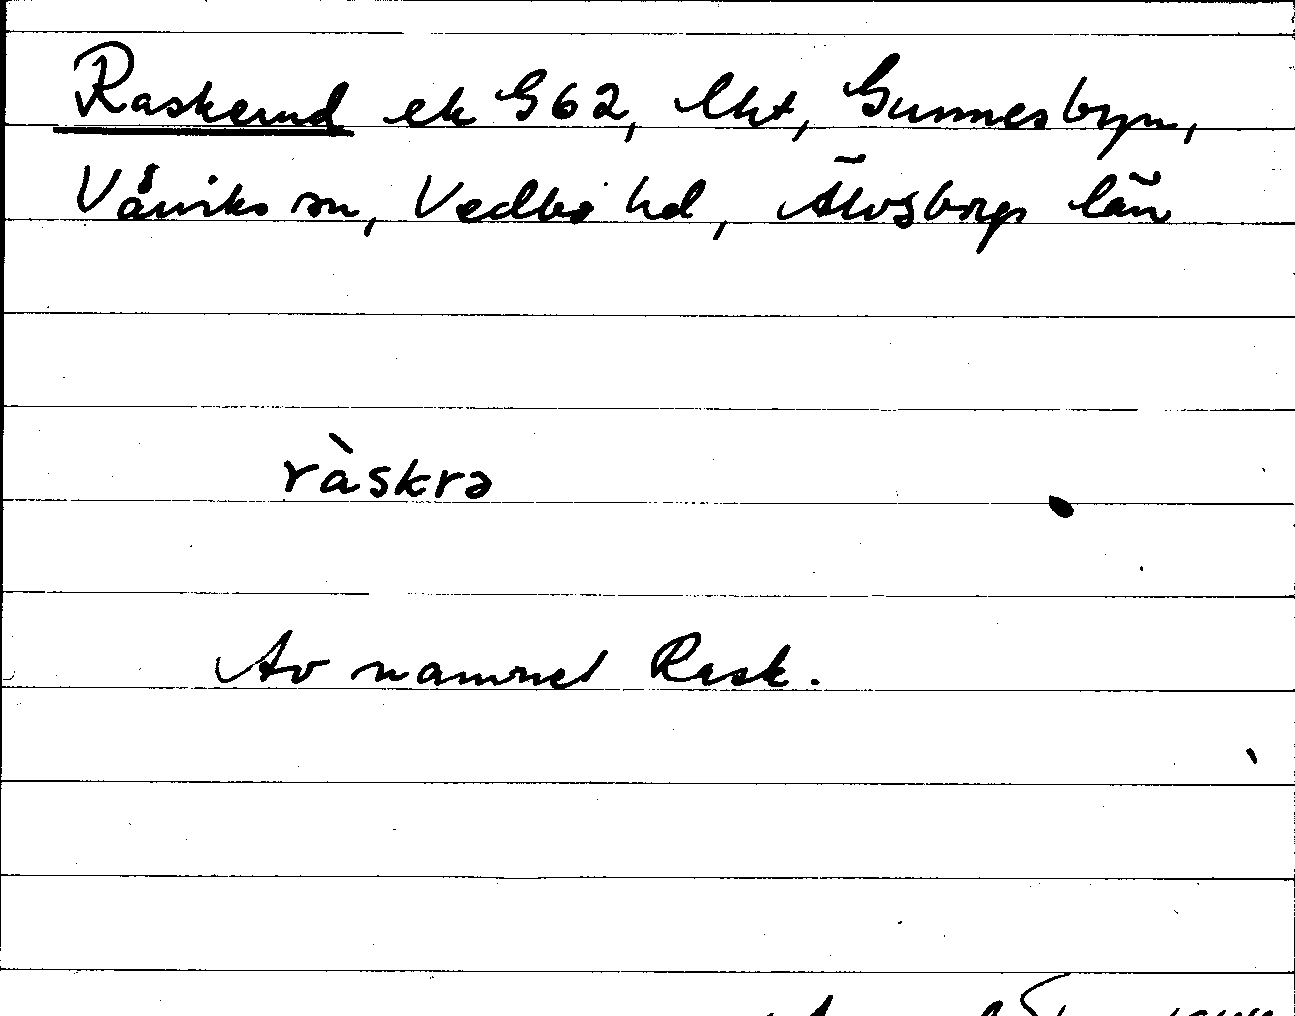 Raskerud ek G62, lht, Gunnesbyn,
Vårviks sn, Vedbo hd, Älvsborgs län
ràskrə
Av namnet Rask.